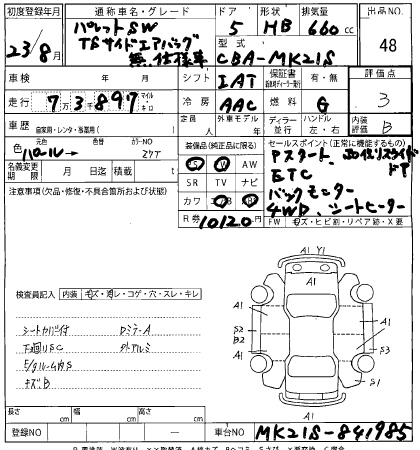 初度登録年月 通称車名・グレード ドア 形状 排気量 出品NO
23/8月 パレットSW 5 HB 660cc 48
TSサイドエアバッグ
無 仕様車 型式 CBA-MK21S
車検 年 月 シフト IAT 保証書 有・無 評価点
走行 73897 マイル キロ 冷房 AAC 燃料 G 3
車歴 自家用・レンタ・事業用( ) 定員 人 外車モデル 年 ディーラー 並行 ハンドル 左・右 内装評価 B
色 元色 パール→ 色替 カラーNO Z7T 装備品(純正品に限る) セールスポイント(正常に機能するもの)
名義変更期限 月 日迄 積載 t PS PW AW Pスタート、両側スライドドア
注意事項(欠品・修復・不具合箇所および状態) SR TV ナビ ETC
カワ バックモニター
R券 10120円 4WD、シートヒーター
FW キズ・ヒビ割・リペア跡・X要
A1 Y1
A1
検査員記入 内装 キズ・汚レ・コゲ・穴・スレ・キレ
A1 A1
シートカバー付 DミラーA S2
下廻りSC 外アルミ B2
A1 S3
キズB A1 S1
A1
長さ cm 幅 cm 高さ cm
登録NO 車台NO MK21S-841985